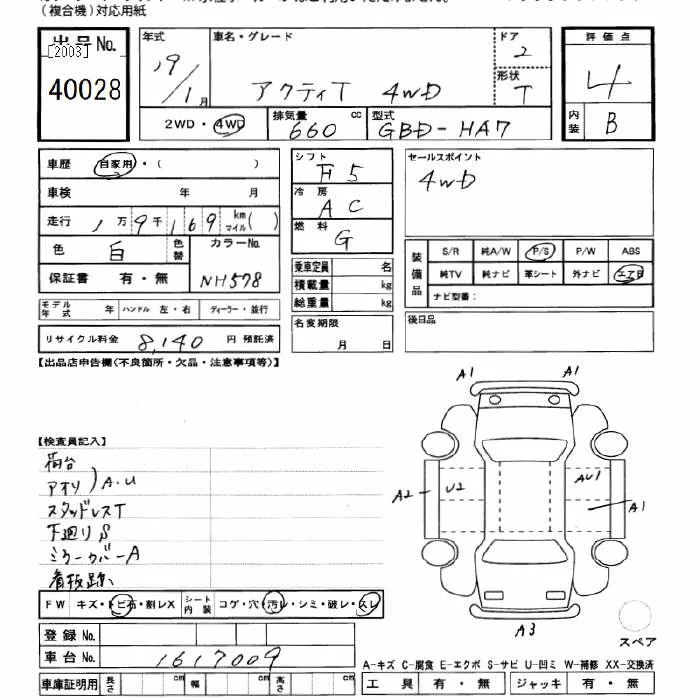 （複合機）対応用紙
出品No.
[2003]
40028
年式
19/1月
車名・グレード
アクティT 4WD
ドア
2
形状
T
評価点
4
内装
B
2WD・4WD
排気量
660 cc
型式
GBD-HA7
車歴
自家用・（ ）
車検 年 月
走行 1万9千169 km マイル( )
色 白 色替
カラーNo.
NH578
保証書 有・無
モデル年式 年 ハンドル 左・右 ディーラー・並行
リサイクル料金 8,140 円 預託済
シフト
F5
冷房
AC
燃料
G
乗車定員 名
積載量 kg
総重量 kg
名変期限
月 日
セールスポイント
4WD
装備品
S/R 純A/W P/S P/W ABS
純TV 純ナビ 革シート 外ナビ エアB
ナビ型番：
後日品
【出品店申告欄(不良箇所・欠品・注意事項等)】
【検査員記入】
荷台
アオリ ) A.U
スタッドレスT
下廻りS
ミラーカバーA
看板跡
A1 A1
A2 U2 AU1 A1
A3
スペア
FW キズ・トビ石・割レX シート内装 コゲ・穴・汚レ・シミ・破レ・スレ
登録No.
車台No. 1617009
車庫証明用 長さ cm 幅 cm 高さ cm
A-キズ C-腐食 E-エクボ S-サビ U-凹ミ W-補修 XX-交換済
工具 有・無 ジャッキ 有・無